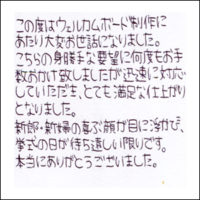 この度はウェルカムボード制作に
あたり大変お世話になりました。
こちらの身勝手な要望に何度もお手
数おかけ致しましたが迅速に対応
していただき、とても満足な仕上がり
となりました。
新郎・新婦の喜ぶ顔が目に浮かび、
挙式の日が待ち遠しい限りです。
本当にありがとうございました。